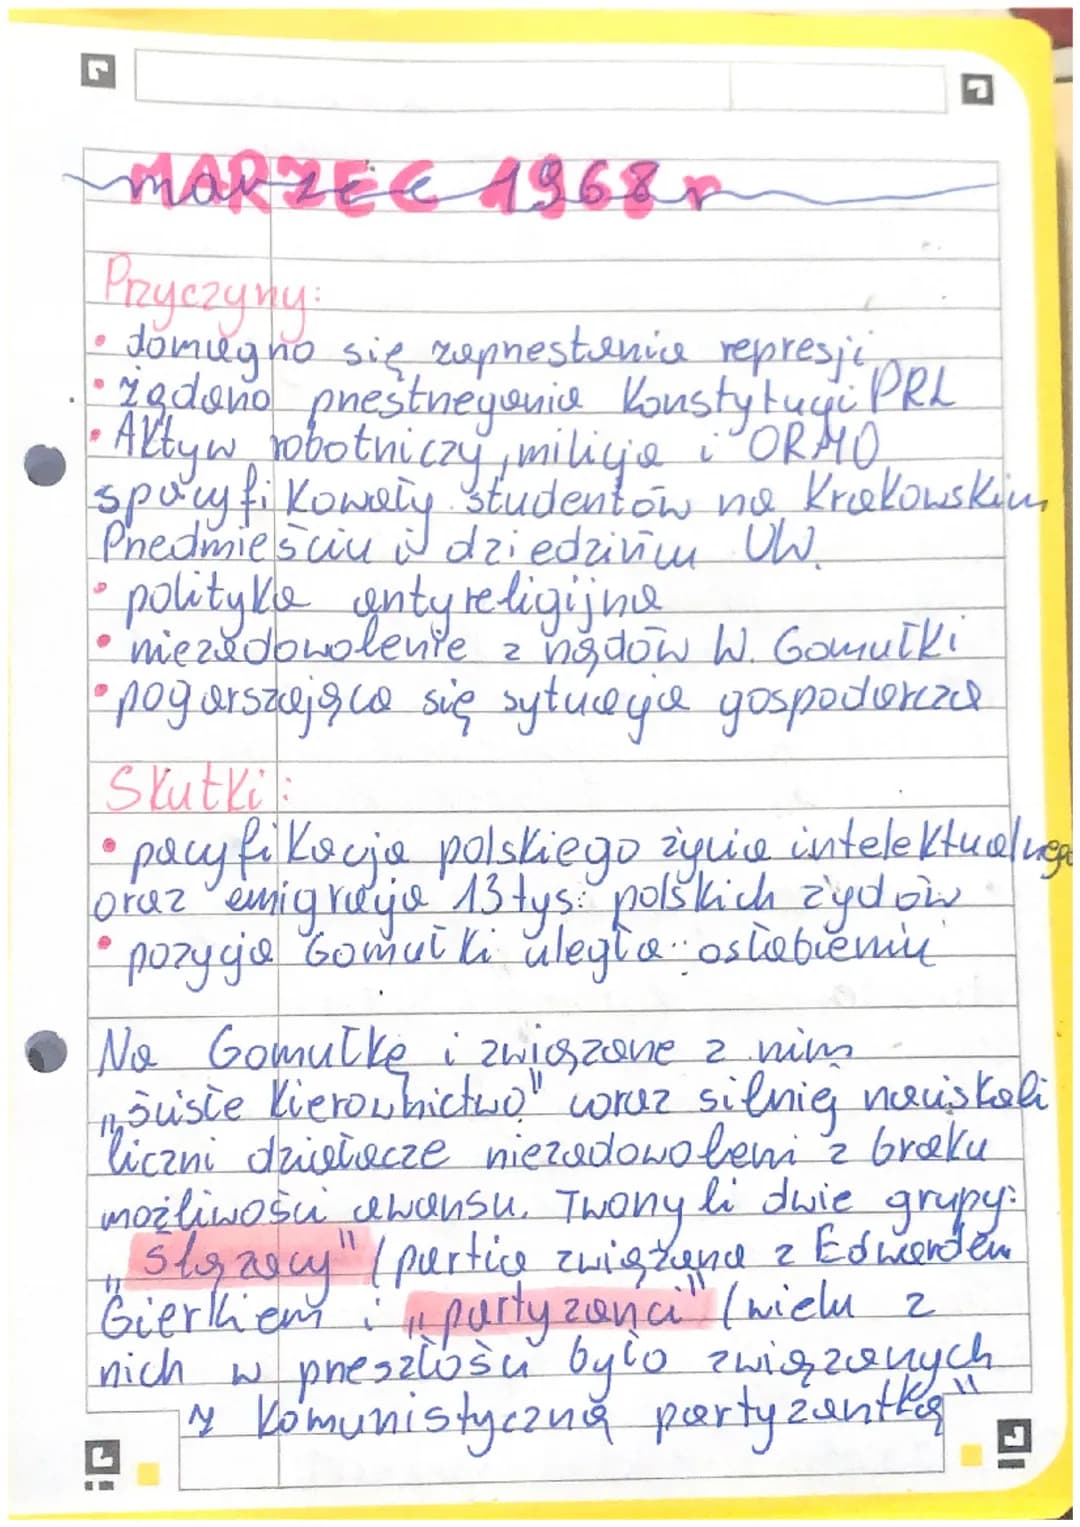 MARZEC 1968r
Przyczyny:
• domagano się zaprzestania represji
• żądano przestrzegania Konstytucji PRL
• Aktyw robotniczy, milicja i ORMO
spacyfikowały studentów na Krakowskim
Przedmieściu i dziedzińcu UW.
• polityka antyreligijna
• niezadowolenie z rządów W. Gomułki
• pogarszająca się sytuacja gospodarcza
Skutki:
• pacyfikacja polskiego życia intelektualnego
oraz emigracja 13 tys. polskich żydów
• pozycja Gomułki uległa osłabieniu
Na Gomułkę i związane z nim
„ściste kierownictwo" coraz silniej naciskali
liczni działacze niezadowoleni z braku
możliwości awansu. Tworzyli dwie grupy:
„Ślązacy" (partia związana z Edwardem
Gierkiem i „partyzanci" (wielu z
nich w przeszłości było związanych
z komunistyczną partyzantką"